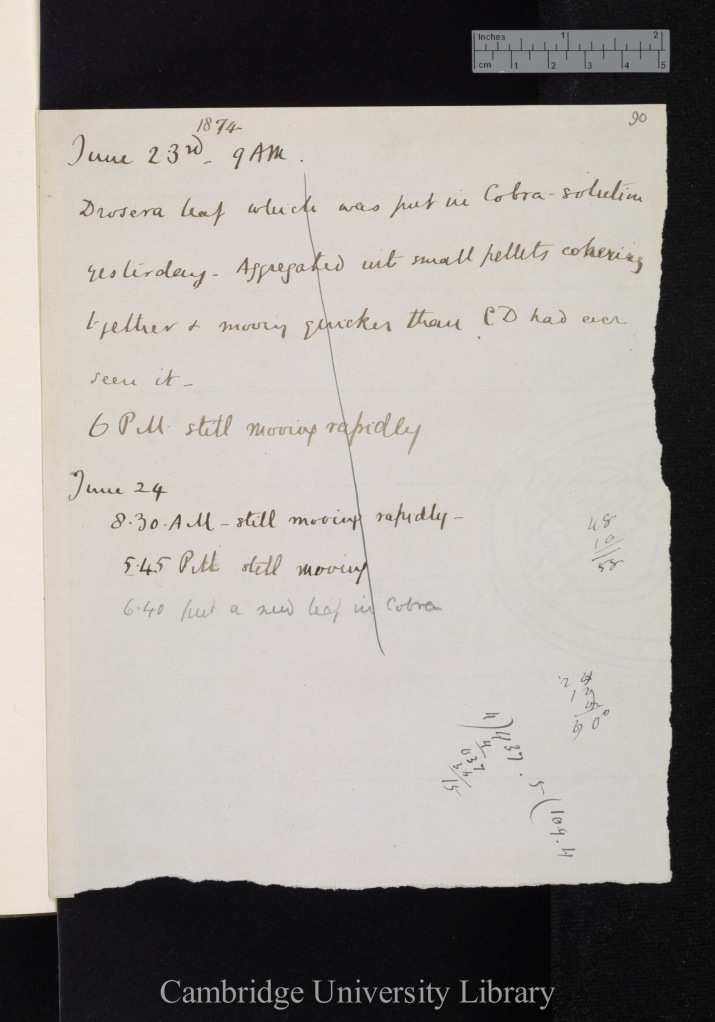 Inches 1 2
cm 1 2 3 4 5
90
1874
June 23rd. 9 AM.
Drosera leaf which was put in Cobra-solution
yesterday - Aggregated into small pellets cohering
together & moving quicker than CD had ever
seen it -
6 P.M. still moving rapidly
June 24
8.30. A.M - still moving rapidly -
5.45 P.M. still moving
6.40 put a new leaf in Cobra
48
10
58
4)437
5)109.4
Cambridge University Library